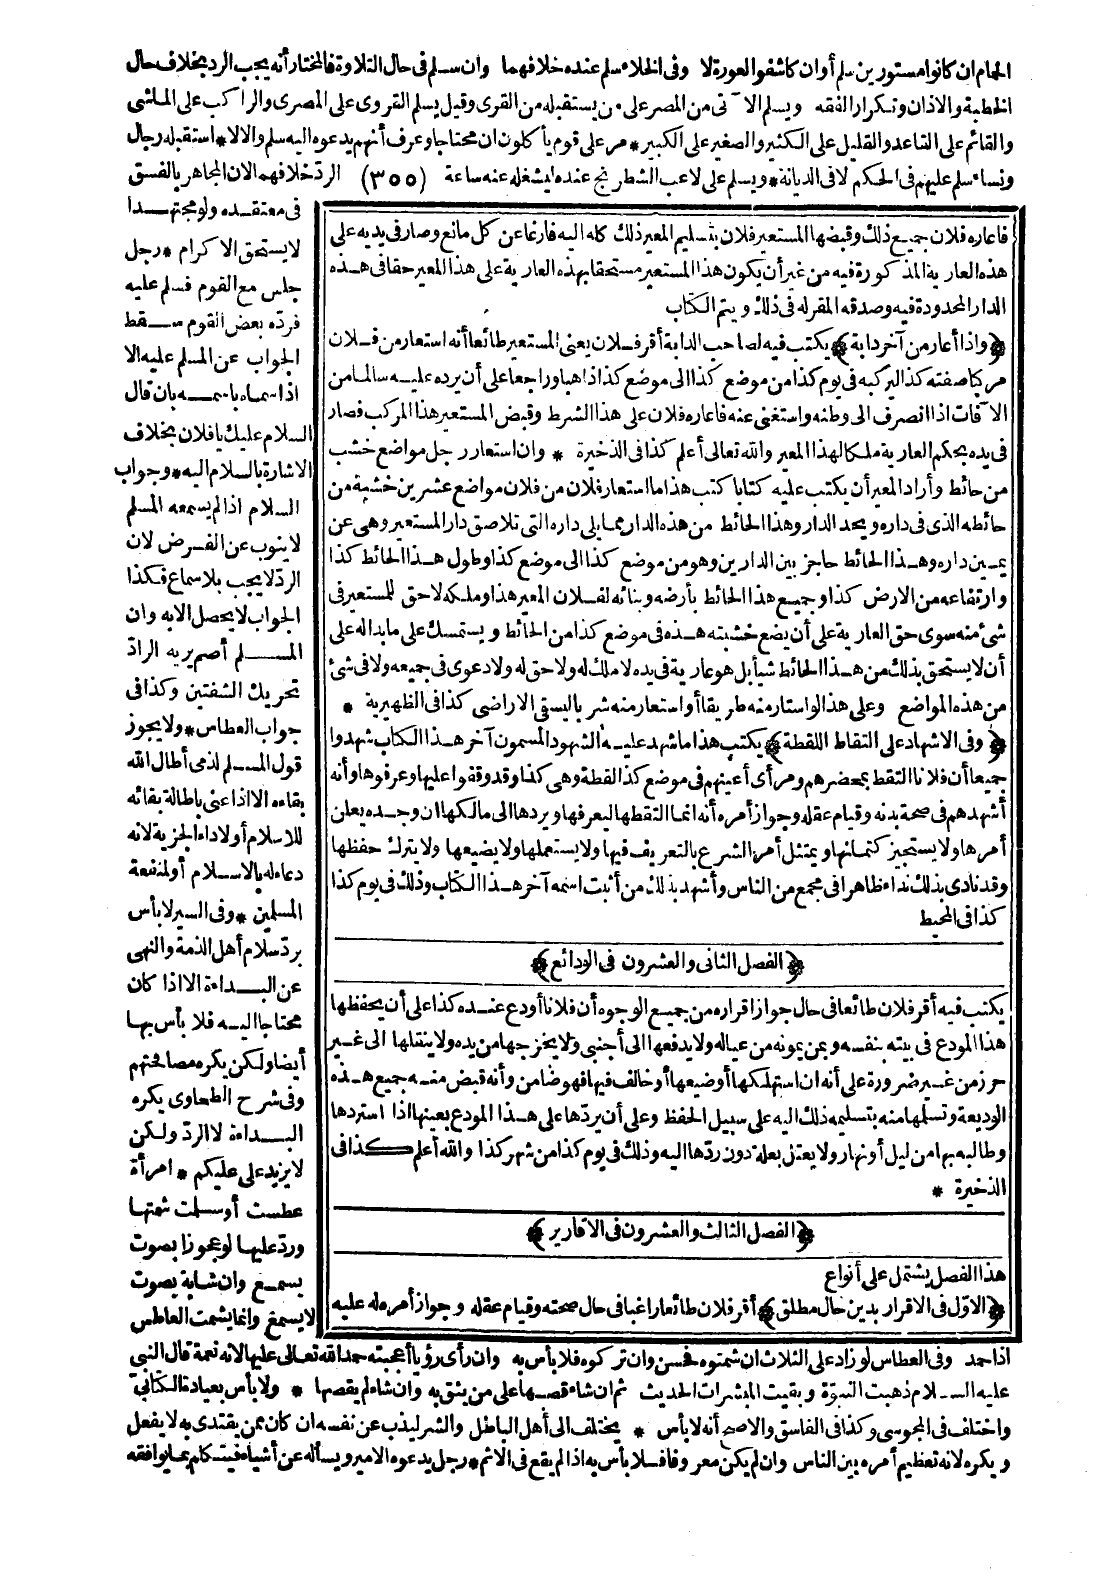 الحمام ان كانوا مستورين سلم أو ان كاشفو العورة لا وفى الخلاء سلم عنده خلافهما وان سلم فى حال التلاوة فالمختار أنه يجب الرد بخلاف حال
الخطبة والاذان وتكرار الفقه ويسلم الآتى من المصر على من يستقبله من القرى وقيل يسلم القروى على المصرى والراكب على الماشى
والقائم على القاعد والقليل على الكثير والصغير على الكبير * مر على قوم يأكلون ان محتاجا وعرف أنهم يدعوه اليه سلم والا لا * استقبله رجال
ونساء سلم عليهم فى الحكم لا فى الديانة * ويسلم على لاعب الشطرنج عنده ليشغله عنه ساعة (٣٥٥) الرد خلافهما لان المجاهر بالفسق
فى معتقده ولو مجتهدا
لا يستحق الا كرام * رجل
جلس مع القوم فسلم عليه
فرده بعض القوم سقط
الجواب عن المسلم عليه الا
اذا سماه باسمه بان قال
السلام عليك يا فلان بخلاف
الاشارة بالسلام اليه * وجواب
السلام اذا لم يسمعه المسلم
لا ينوب عن الفرض لان
الرد لا يجب بلا سماع فكذا
الجواب لا يحصل الا به وان
المسلم أصم يريه الراد
تحريك الشفتين وكذا فى
جواب العطاس * ولا يجوز
قول المسلم لذمى أطال الله
بقاءه الا اذا عنى باطالة بقائه
للاسلام أو لاداء الجزية لانه
دعاء له بالاسلام أو لمنفعة
المسلمين * وفى السير لا بأس
برد سلام أهل الذمة والنهى
عن البداءة الا اذا كان
محتاجا اليه فلا بأس بها
أيضا ولكن يكره مصافحتهم
وفى شرح الطحاوى يكره
البداءة لا الرد ولكن
لا يزيد على عليكم * امرأة
عطست أو سلمت شمتها
ورد عليها لو عجوزا بصوت
يسمع وان شابة بصوت
لا يسمع وانما يشمت العاطس
فاعاره فلان جميع ذلك وقبضها المستعير فلان بتسليم المعير ذلك كله اليه فارغا عن كل مانع وصار فى يديه على
هذه العارية المذكورة فيه من غير أن يكون هذا المستعير مستحقا بهذه العارية على هذا المعير حقا فى هذه
الدار المحدودة فيه وصدقه المقر له فى ذلك ويتم الكتاب
﴿واذا أعار من آخر دابة﴾ يكتب فيه لصاحب الدابة أقر فلان يعنى المستعير طائعا أنه استعار من فلان
مركبا صفته كذا ليركبه فى يوم كذا من موضع كذا الى موضع كذا ذاهبا وراجعا على أن يرده عليه سالما من
الآفات اذا انصرف الى وطنه واستغنى عنه فاعاره فلان على هذا الشرط وقبض المستعير هذا المركب فصار
فى يده بحكم العارية ملكا لهذا المعير والله تعالى أعلم كذا فى الذخيرة * وان استعار رجل مواضع خشب
من حائط وأراد المعير أن يكتب عليه كتابا كتب هذا ما استعار فلان من فلان مواضع عشرين خشبة من
حائطه الذى فى داره ويحد الدار وهذا الحائط من هذه الدار مما يلى داره التى تلاصق دار المستعير وهى عن
يمين داره وهذا الحائط حاجز بين الدارين وهو من موضع كذا الى موضع كذا وطول هذا الحائط كذا
وارتفاعه من الارض كذا وجميع هذا الحائط بأرضه وبنائه لفلان المعير هذا وملكه لا حق للمستعير فى
شئ منه سوى حق العارية على أن يضع خشبته هذه فى موضع كذا من الحائط ويستمسك على ما بدا له على
أن لا يستحق بذلك من هذا الحائط شيأ بل هو عارية فى يده لا ملك له ولا حق له ولا دعوى فى جميعه ولا فى شئ
من هذه المواضع وعلى هذا لو استار منه طريقا أو استعار منه شربا ليسقى الاراضى كذا فى الظهيرية *
﴿وفى الاشهاد على التقاط اللقطة﴾ يكتب هذا ما شهد عليه الشهود المسمون آخر هذا الكتاب شهدوا
جميعا أن فلانا التقط بمحضرهم ومرأى أعينهم فى موضع كذا لقطة وهى كذا وقد وقفوا عليها وعرفوها وأنه
أشهدهم فى صحة بدنه وقيام عقله وجواز أمره أنه انما التقطها ليعرفها ويردها الى مالكها ان وجده يعلن
أمرها ولا يستجيز كتمانها ويمتثل أمر الشرع بالتعريف فيها ولا يستعملها ولا يضيعها ولا يترك حفظها
وقد نادى بذلك نداء ظاهرا فى مجمع من الناس وأشهد بذلك من أثبت اسمه آخر هذا الكتاب وذلك فى يوم كذا
كذا فى المحيط
﴿الفصل الثانى والعشرون فى الودائع﴾
يكتب فيه أقر فلان طائعا فى حال جواز اقراره من جميع الوجوه أن فلانا أودع عنده كذا على أن يحفظها
هذا المودع فى بيته بنفسه وبمن يمونه من عياله ولا يدفعها الى أجنبى ولا يخرجها من يده ولا ينقلها الى غير
حرز من غير ضرورة على أنه ان استهلكها أو ضيعها أو خالف فيها فهو ضامن وأنه قبض منه جميع هذه
الوديعة وتسلمها منه بتسليمه ذلك اليه على سبيل الحفظ وعلى أن يردها على هذا المودع بعينها اذا استردها
وطالبه بها من ليل أو نهار ولا يعتل بعلة دون ردها اليه وذلك فى يوم كذا من شهر كذا والله أعلم كذا فى
الذخيرة *
﴿الفصل الثالث والعشرون فى الاقارير﴾
هذا الفصل يشتمل على أنواع
﴿الاول فى الاقرار بدين حال مطلق﴾ أقر فلان طائعا راغبا فى حال صحته وقيام عقله وجواز أمره له عليه
اذا حمد وفى العطاس لو زاد على الثلاث ان شمتوه فحسن وان تركوه فلا بأس به وان رأى رؤيا أعجبته حمد الله تعالى عليها لانه نعمة قال النبى
عليه السلام ذهبت النبوة وبقيت المبشرات الحديث ثم ان شاء قصها على من يثق به وان شاء لم يقصها * ولا بأس بعيادة الكتابى
واختلف فى المجوسى وكذا فى الفاسق والاصح أنه لا بأس * يختلف الى أهل الباطل والشر ليذب عن نفسه ان كان ممن يقتدى به لا يفعل
ويكره لانه تعظيم أمره بين الناس وان لم يكن معروفا فلا بأس به اذا لم يقع فى الاثم * رجل يدعوه الامير ويسأله عن أشياء فيتكلم بما يوافقه